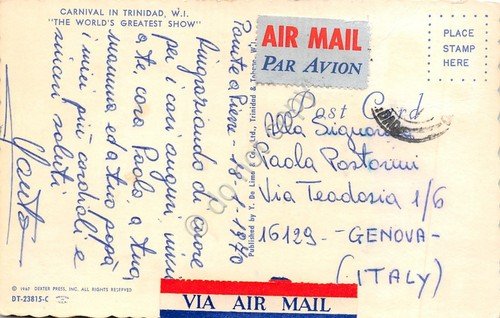 CARNIVAL IN TRINIDAD, W.I.
"THE WORLD'S GREATEST SHOW"
Pointe a Pierre - 18-3-1970
Ringraziando di cuore
per i cari auguri, invio
a te, cara Paola, a tua
mamma ed a tuo papà
i miei più cordiali e
sinceri saluti
© 1967 DEXTER PRESS, INC. ALL RIGHTS RESERVED
DT-23815-C
Published by Y. De Lima & Co., Ltd., Trinidad & Tobago, W.I.
AIR MAIL
PAR AVION
PLACE
STAMP
HERE
Post Card
Alla Signorina
Paola Postorini
Via Teodosia 1/6
16129 - GENOVA -
(ITALY)
VIA AIR MAIL